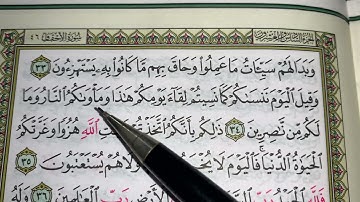 وَبَدَا لَهُمْ سَيِّئَاتُ مَا عَمِلُوا وَحَاقَ بِهِم مَّا كَانُوا بِهِ يَسْتَهْزِءُونَ ٣٣
وَقِيلَ الْيَوْمَ نَنسَىٰكُمْ كَمَا نَسِيتُمْ لِقَاءَ يَوْمِكُمْ هَٰذَا وَمَأْوَىٰكُمُ النَّارُ وَمَا
لَكُم مِّن نَّٰصِرِينَ ٣٤ ذَٰلِكُم بِأَنَّكُمُ اتَّخَذْتُمْ اللَّهِ هُزُوًا وَغَرَّتْكُمُ
الْحَيَوٰةُ الدُّنْيَا فَالْيَوْمَ لَا وَلَا هُمْ يُسْتَعْتَبُونَ ٣٥
رَبِّ الْعَٰلَمِينَ ٣٦